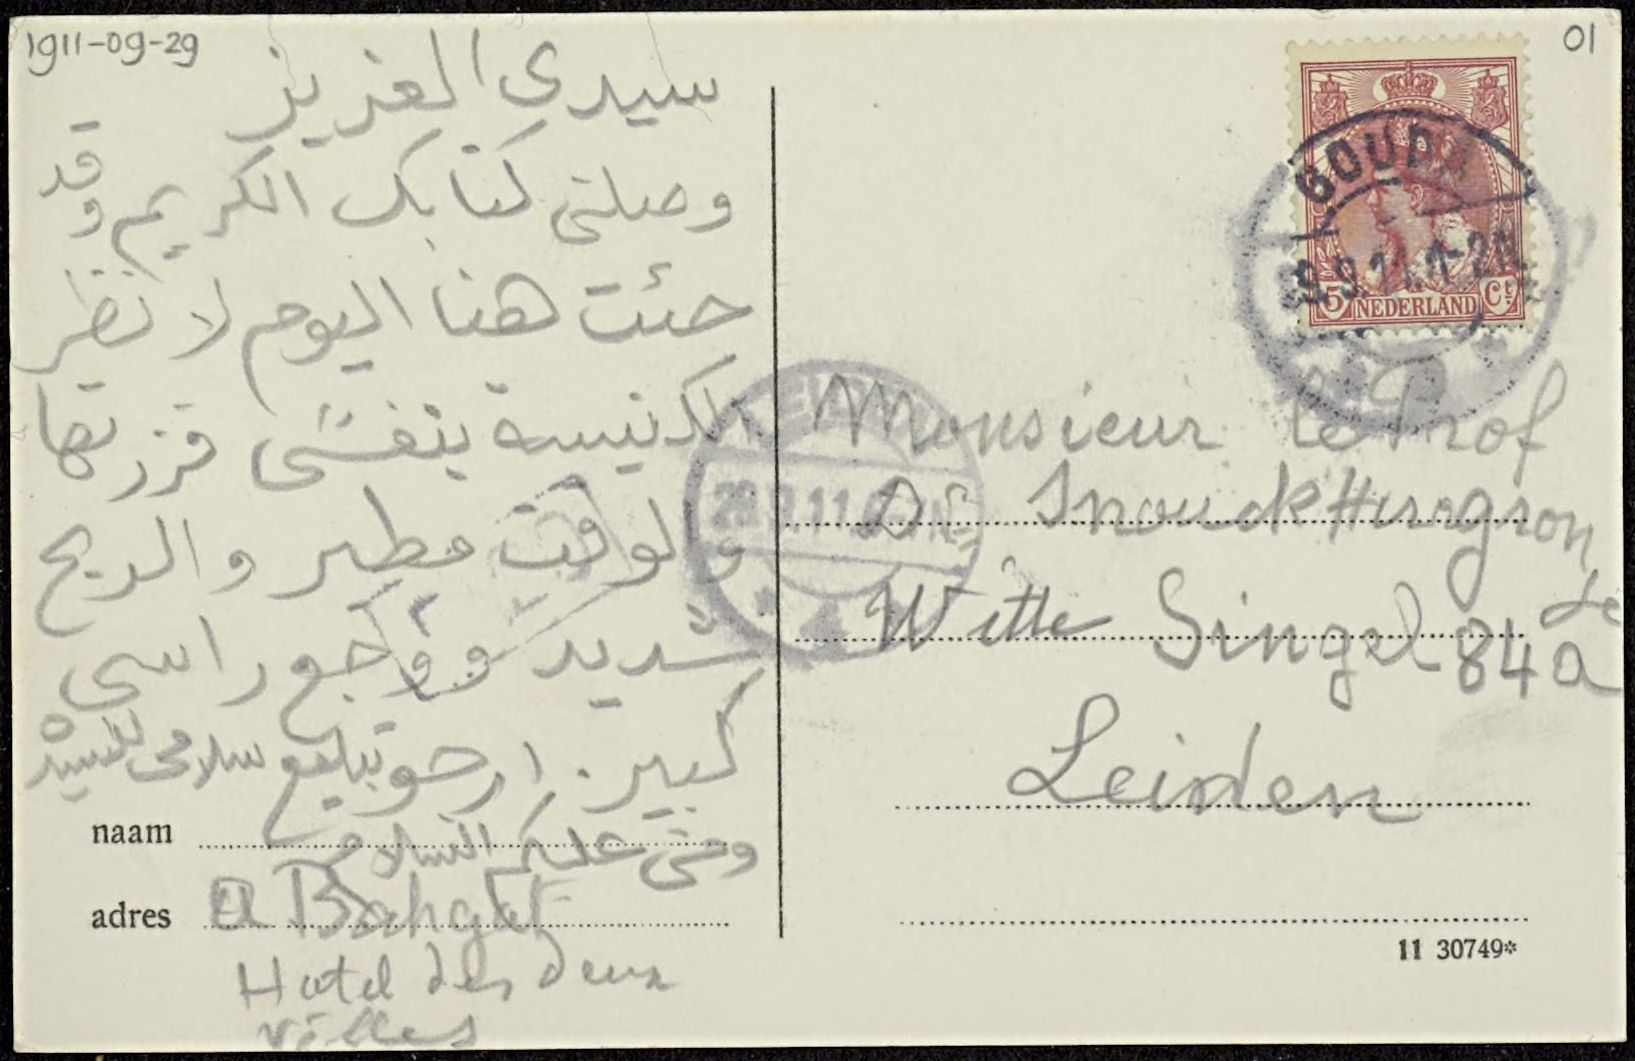 1911-09-29
01
سيدى العزيز
وصلنى كتابك الكريم وقد
جئت هنا اليوم لانظر
الكنيسة بنفسى فزرتها
والوقت مطير والريح
شديد ووجع راسى
كبير. ارجو تبليغ سلامى للسيدة
ومنى عليكم السلام
naam
adres
A Bahgat
Hotel des deux
villes
GOUDA
29.9.11
5 NEDERLAND Ct
LEIDEN
29.9.11
Monsieur le Prof
Dr Snouck Hurgronje
Witte Singel 84a
Leiden
11 30749*